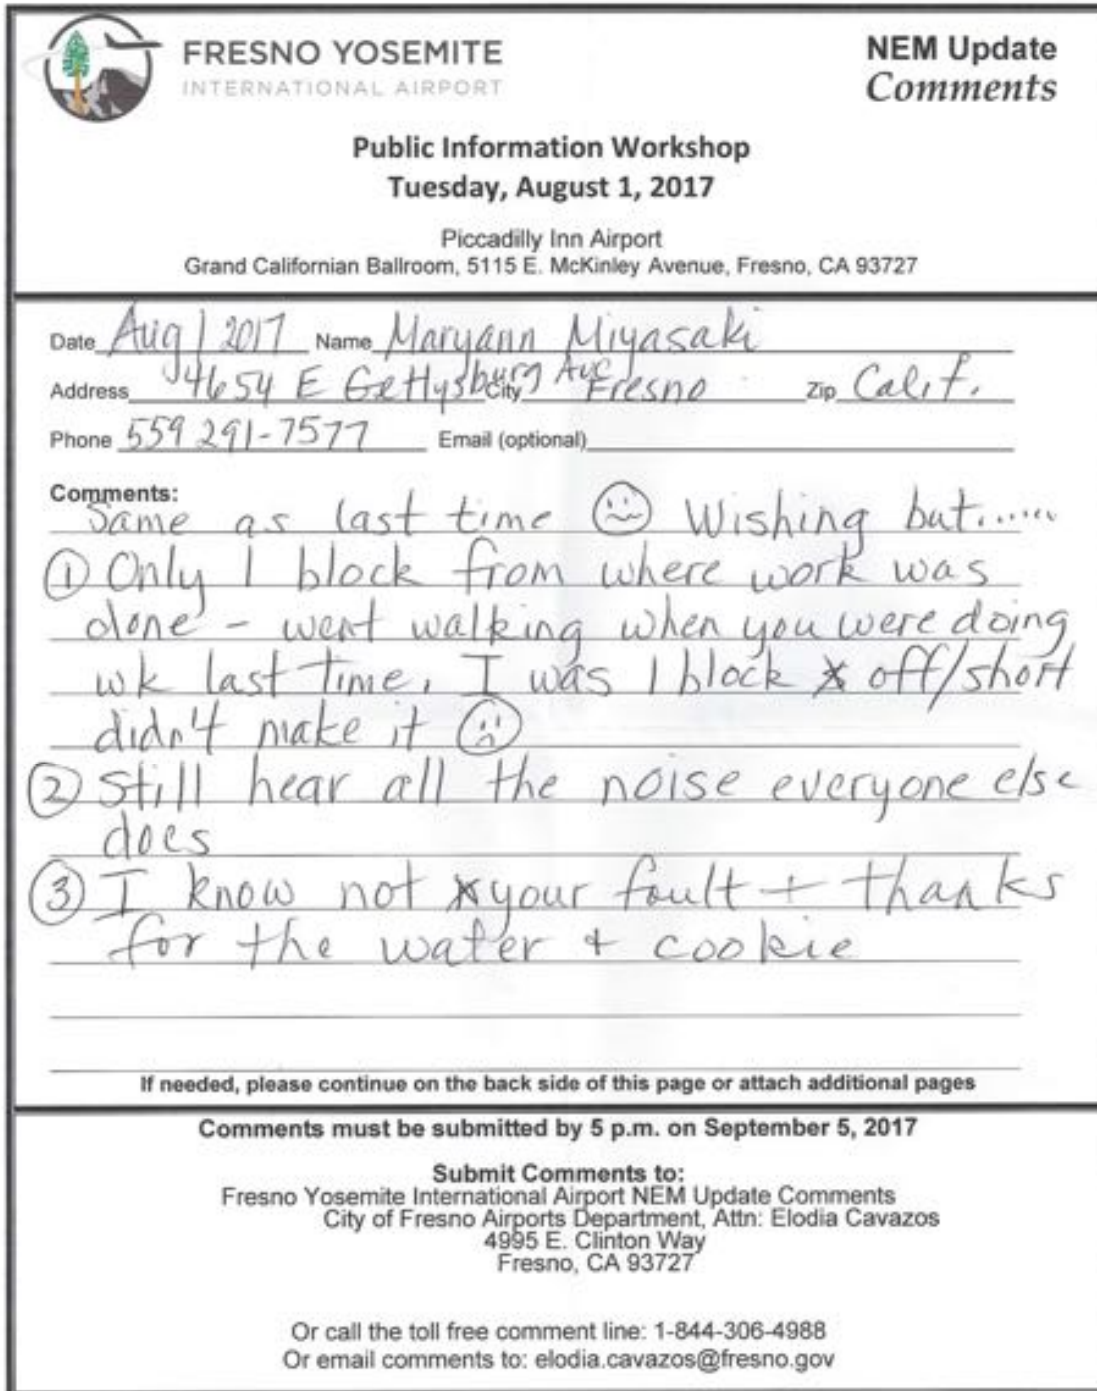 FRESNO YOSEMITE
INTERNATIONAL AIRPORT
NEM Update
Comments
Public Information Workshop
Tuesday, August 1, 2017
Piccadilly Inn Airport
Grand Californian Ballroom, 5115 E. McKinley Avenue, Fresno, CA 93727
Date Aug 1 2017 Name Maryann Miyasaki
Address 4654 E Gettysburg Ave City Fresno Zip Calif.
Phone 559 291-7577 Email (optional)
Comments:
Same as last time Wishing but......
① Only 1 block from where work was
done - went walking when you were doing
wk last time, I was 1 block off/short
didn't make it
② Still hear all the noise everyone else
does
③ I know not your fault + thanks
for the water + cookie
If needed, please continue on the back side of this page or attach additional pages
Comments must be submitted by 5 p.m. on September 5, 2017
Submit Comments to:
Fresno Yosemite International Airport NEM Update Comments
City of Fresno Airports Department, Attn: Elodia Cavazos
4995 E. Clinton Way
Fresno, CA 93727
Or call the toll free comment line: 1-844-306-4988
Or email comments to: elodia.cavazos@fresno.gov